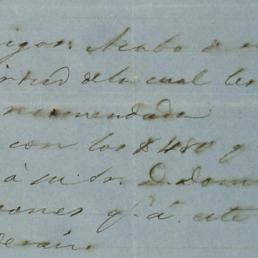 Acabo de
virtud de la cual le
recomendada
con los $ 480 y
á su Sr. D. Dom
ones q.e á este